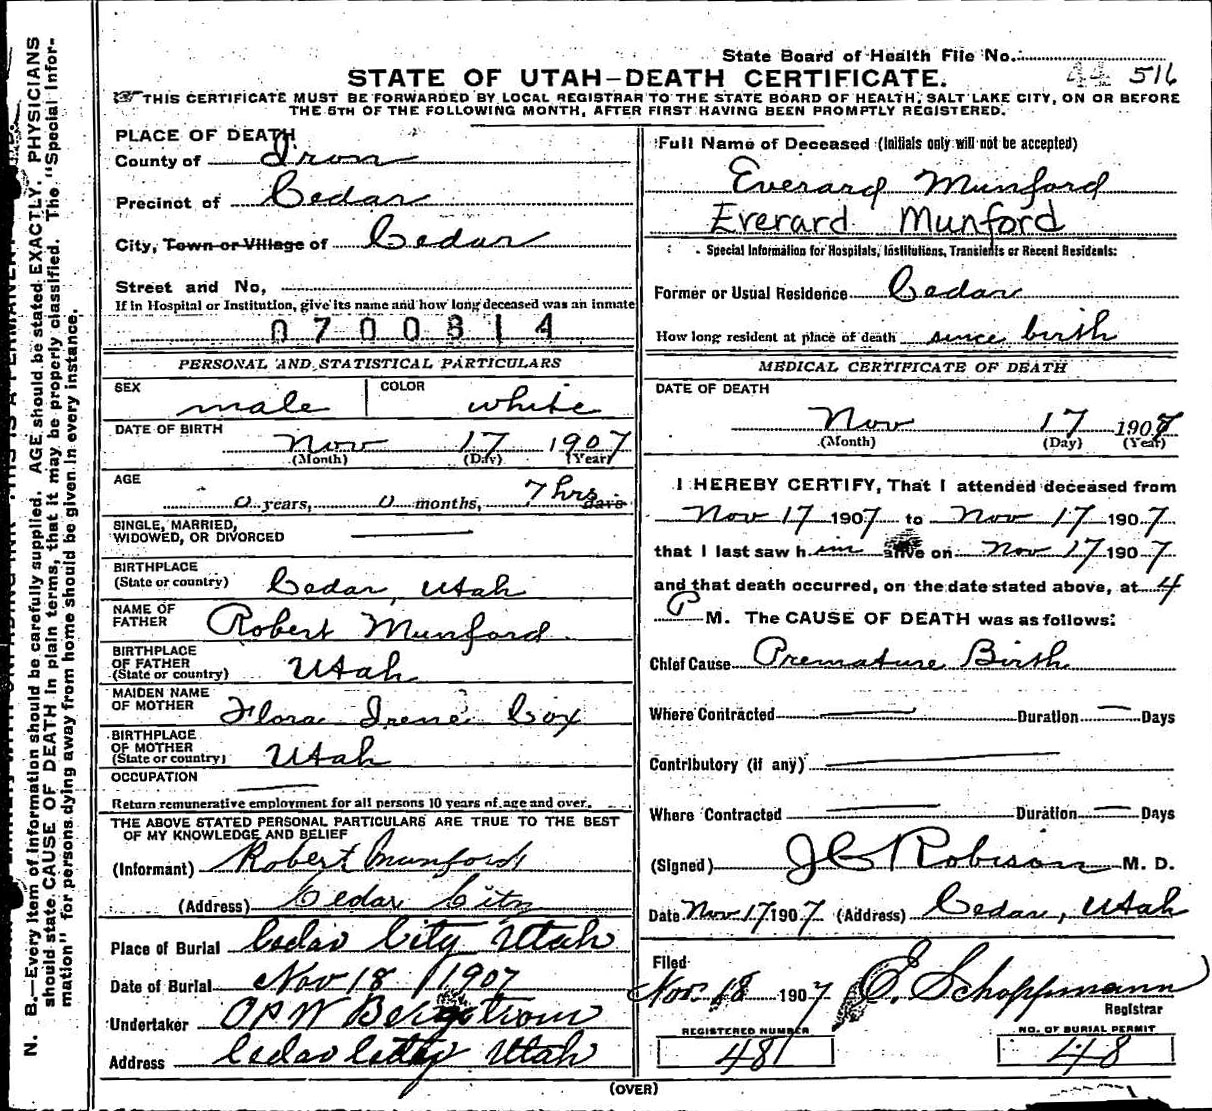 State Board of Health File No. 44 516
STATE OF UTAH—DEATH CERTIFICATE.
THIS CERTIFICATE MUST BE FORWARDED BY LOCAL REGISTRAR TO THE STATE BOARD OF HEALTH, SALT LAKE CITY, ON OR BEFORE
THE 5TH OF THE FOLLOWING MONTH, AFTER FIRST HAVING BEEN PROMPTLY REGISTERED.
PLACE OF DEATH
County of Iron
Precinct of Cedar
City, Town or Village of Cedar
Street and No,
If in Hospital or Institution, give its name and how long deceased was an inmate
0700814
PERSONAL AND STATISTICAL PARTICULARS
SEX male COLOR white
DATE OF BIRTH
Nov 17 1907
(Month) (Day) (Year)
AGE
0 years, 0 months, 7 hrs days
SINGLE, MARRIED,
WIDOWED, OR DIVORCED
BIRTHPLACE
(State or country) Cedar, Utah
NAME OF
FATHER Robert Munford
BIRTHPLACE
OF FATHER
(State or country) Utah
MAIDEN NAME
OF MOTHER Flora Irene Cox
BIRTHPLACE
OF MOTHER
(State or country) Utah
OCCUPATION
Return remunerative employment for all persons 10 years of age and over.
THE ABOVE STATED PERSONAL PARTICULARS ARE TRUE TO THE BEST
OF MY KNOWLEDGE AND BELIEF
(Informant) Robert Munford
(Address) Cedar City
Place of Burial Cedar City Utah
Date of Burial Nov 18 1907
Undertaker OPW Bergstrom
Address Cedar City Utah
Full Name of Deceased (Initials only will not be accepted)
Everard Munford
Everard Munford
Special Information for Hospitals, Institutions, Transients or Recent Residents:
Former or Usual Residence Cedar
How long resident at place of death since birth
MEDICAL CERTIFICATE OF DEATH
DATE OF DEATH
Nov 17 1907
(Month) (Day) (Year)
I HEREBY CERTIFY, That I attended deceased from
Nov 17 1907 to Nov 17 1907
that I last saw him alive on Nov 17 1907
and that death occurred, on the date stated above, at 4
P M. The CAUSE OF DEATH was as follows:
Chief Cause Premature Birth
Where Contracted Duration Days
Contributory (if any)
Where Contracted Duration Days
(Signed) JC Robison M. D.
Date Nov 17 1907 (Address) Cedar, Utah
Filed
Nov. 18 1907 E. Schoppmann
Registrar
REGISTERED NUMBER
48
NO. OF BURIAL PERMIT
48
(OVER)
N. B.—Every item of information should be carefully supplied. AGE should be stated EXACTLY. PHYSICIANS
should state CAUSE OF DEATH in plain terms, that it may be properly classified. The "Special Infor-
mation" for persons dying away from home should be given in every instance.